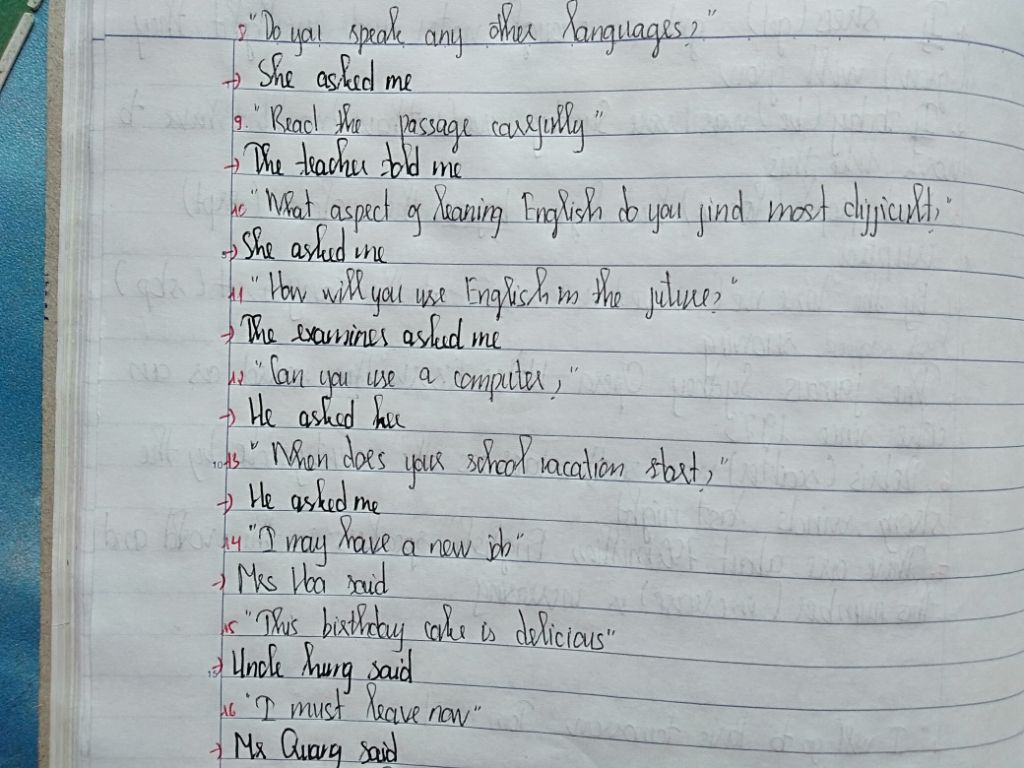 8 "Do you speak any other languages?"
→ She asked me
9. "Read the passage carefully"
→ The teacher told me
10 "What aspect of leaning English do you find most difficult?"
→ She asked me
11 "How will you use English in the future?"
→ The examines asked me
12 "Can you use a computer?"
→ He asked her
13 "When does your school vacation start?"
→ He asked me
14 "I may have a new job"
→ Mrs Hoa said
15 "This birthday cake is delicious"
→ Uncle Hung said
16 "I must leave now"
→ Mr Quang said